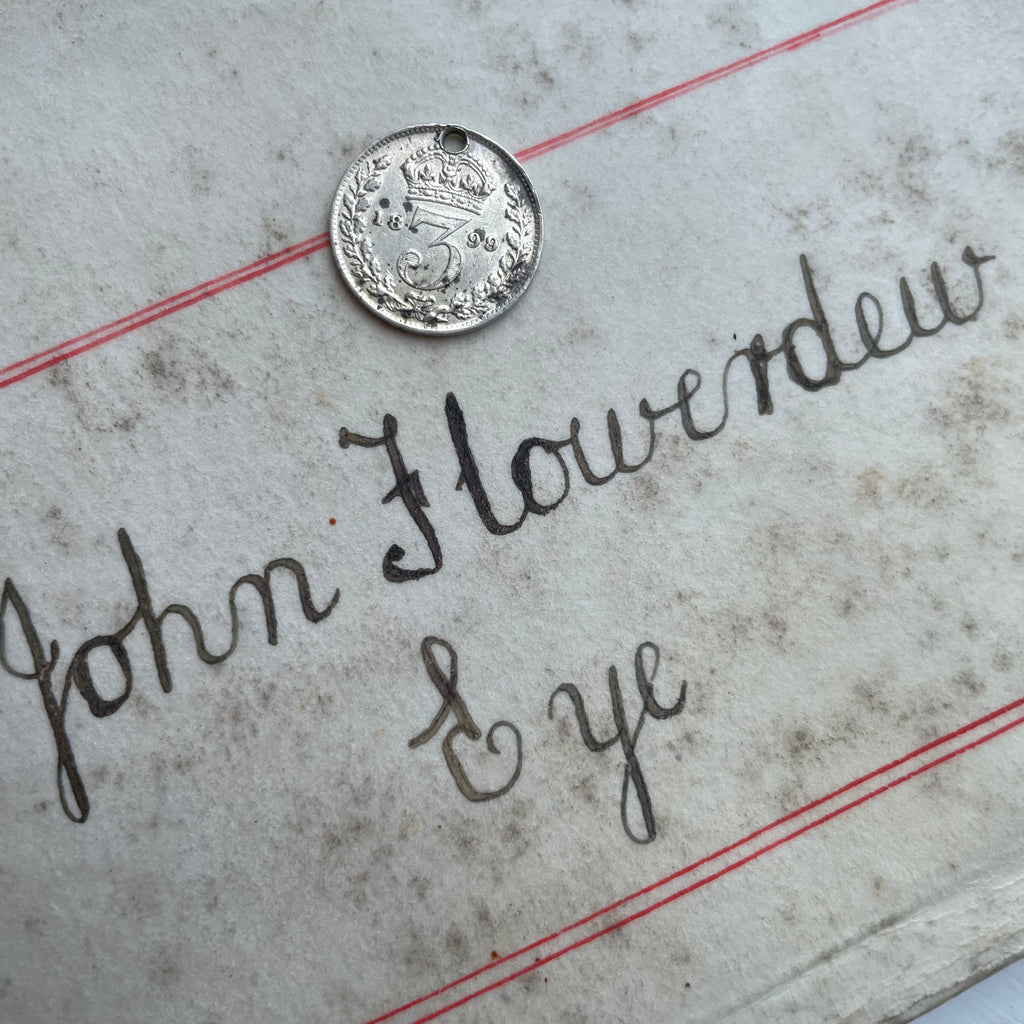 18 3 99
John Flowerdew
Eye